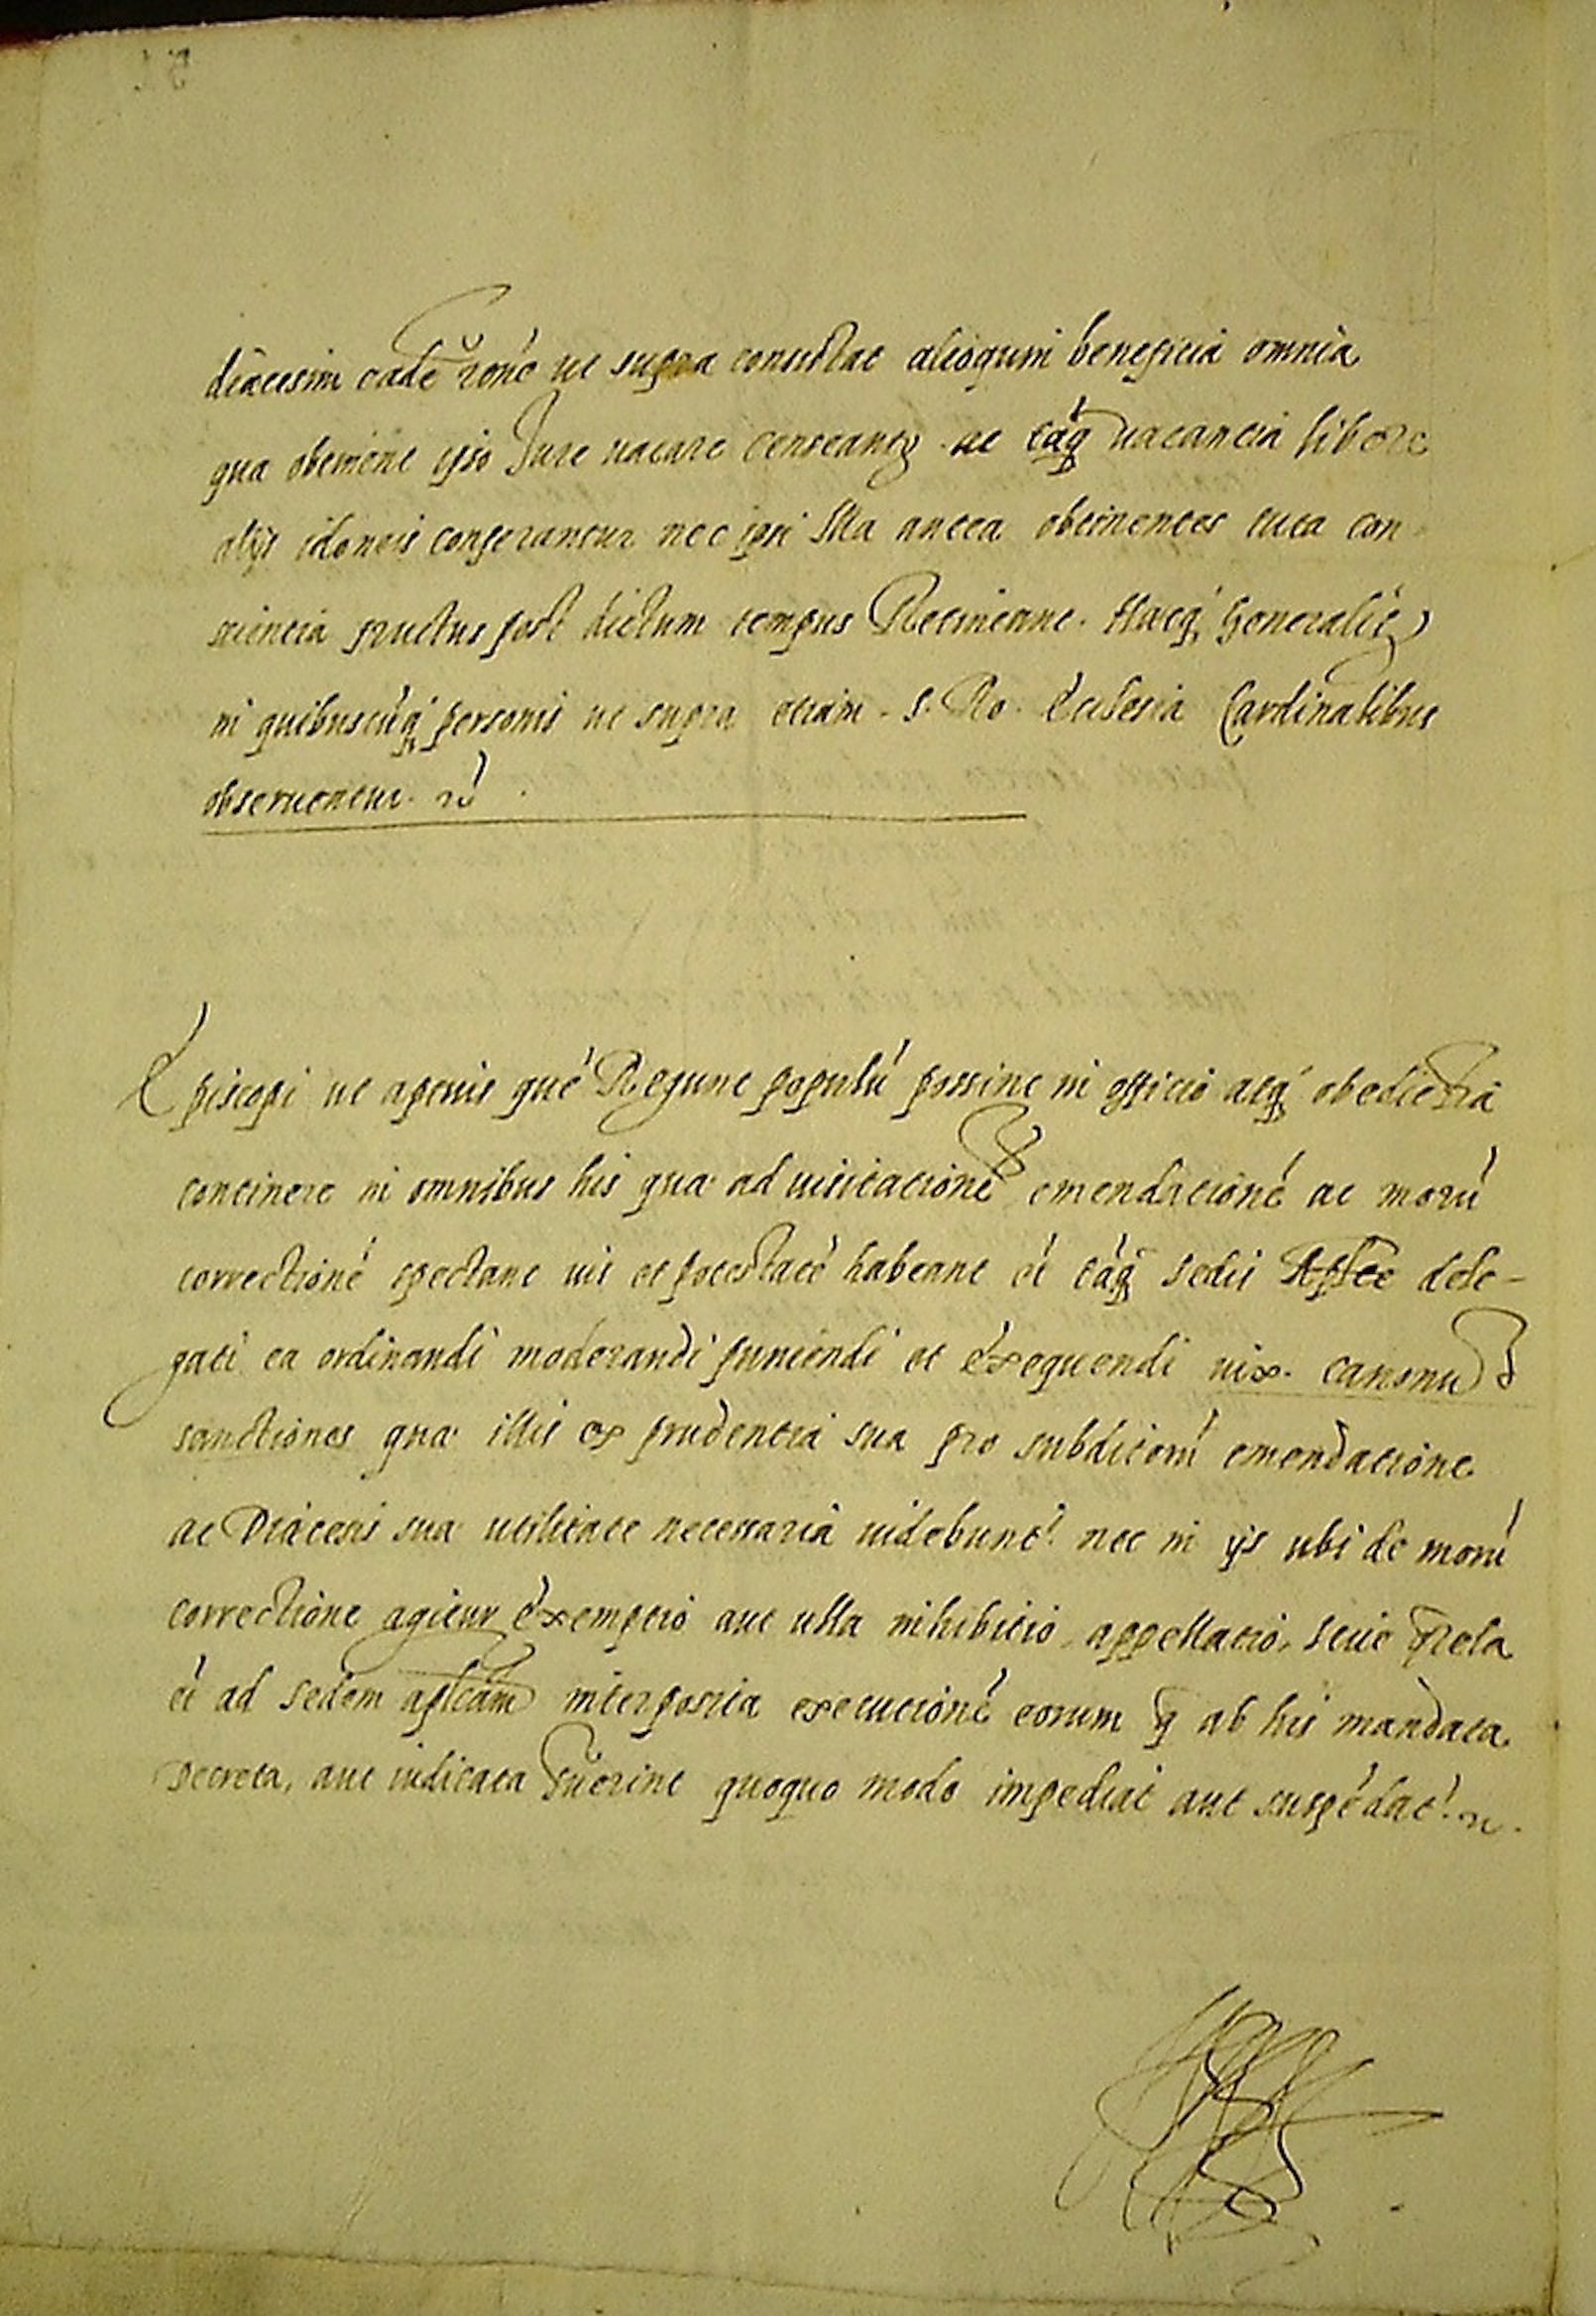 diæcesim eadẽ rõnẽ ut supra consistat alioquin beneficia omnia
quæ obtinent ipso Jure uacare censeantꝫ ac tãq̃ uacantia libere
alijs idoneis conferantur nec ipsi Illa antea obtinentes tuta con
scientia fructus post dictum tempus Retineant. Hæcq́ Generalit̃
in quibuscũq́ personis ut supra etiam. S. Ro. Ecclesiæ Cardinalibus
obseruentur.
Episcopi ut aptius quẽ Regunt populũ possint in officio atq́ obediẽtia
continere in omnibus his quæ ad uisitationẽ emendationẽ ac morũ
correctionẽ spectant ius et potestatẽ habeant ẽt tãq̃ sedis Aplicẽ dele-
gati ea ordinandi moderandi puniendi et exequendi iux. canonũ
sanctiones quæ illis ex prudentia sua pro subditorũ emendatione
ac Diæcesis suæ utilitate necessaria uidebunt̃. nec in ijs ubi de morũ
correctione agitur exemptio aut ulla inhibitio, appellatio, seu
ẽt ad sedem aplicam interposita executionẽ eorum q̃ ab his mandata
Decreta, aut iudicata fuerint quoquo modo impediat aut suspẽdat.